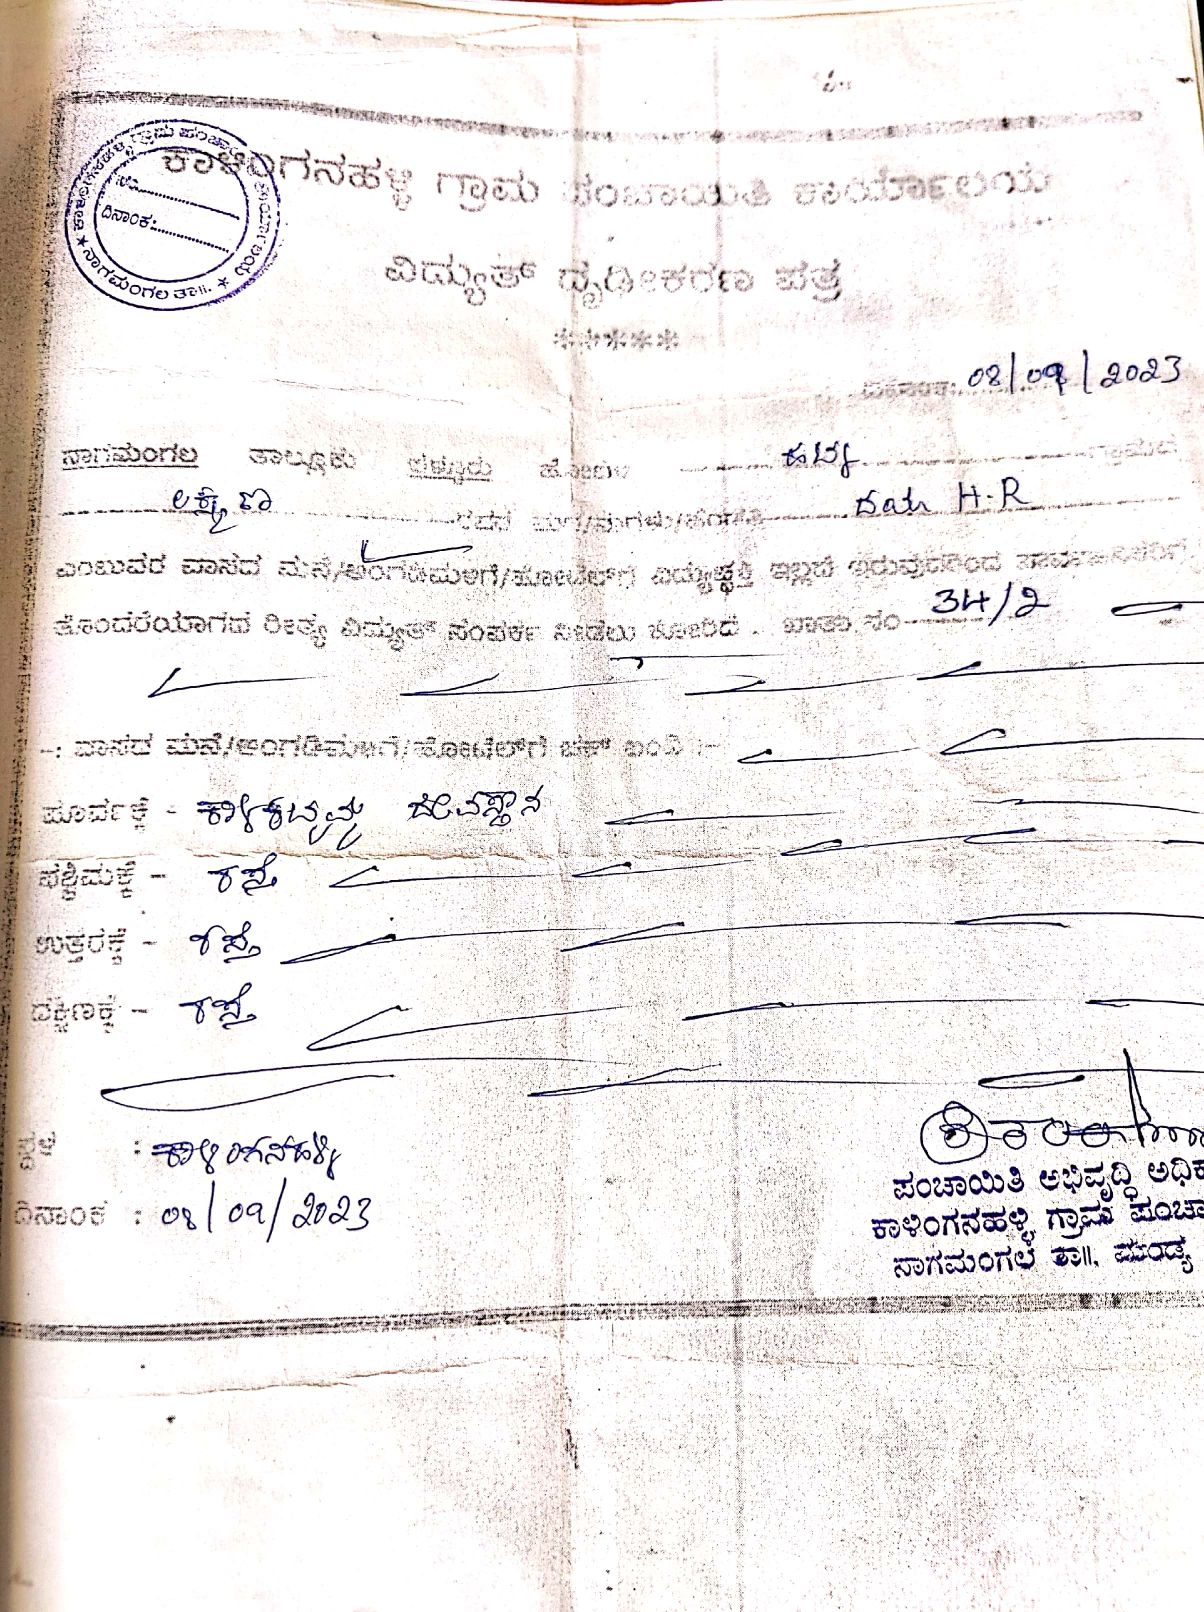 ಕಾಳಿಂಗನಹಳ್ಳಿ ಗ್ರಾಮ ಪಂಚಾಯಿತಿ ಕಾರ್ಯಾಲಯ
ನಾಗಮಂಗಲ ತಾ॥.
ನಂ.
ದಿನಾಂಕ:
ವಿದ್ಯುತ್ ದೃಢೀಕರಣ ಪತ್ರ
*****
ದಿನಾಂಕ: 08/09/2023
ನಾಗಮಂಗಲ ತಾಲ್ಲೂಕು ಹೋಬಳಿ ಗ್ರಾಮದ
ಲಕ್ಷ್ಮಣ ರವರ ಮಗ/ಮಗಳು/ಹೆಂಡತಿ H.R
ಎಂಬುವರ ವಾಸದ ಮನೆ/ಅಂಗಡಿಮಳಿಗೆ/ಹೋಟೆಲ್‌ಗೆ ವಿದ್ಯುಚ್ಛಕ್ತಿ ಇಲ್ಲದೆ ಇರುವುದರಿಂದ ಸಾರ್ವಜನಿಕರಿಗೆ
ತೊಂದರೆಯಾಗದ ರೀತ್ಯ ವಿದ್ಯುತ್ ಸಂಪರ್ಕ ನೀಡಲು ಕೋರಿದೆ. ಖಾತಾ ನಂ 34/2
-: ವಾಸದ ಮನೆ/ಅಂಗಡಿಮಳಿಗೆ/ಹೋಟೆಲ್‌ಗೆ ಚಕ್ ಬಂದಿ :-
ಪೂರ್ವಕ್ಕೆ - ದೇವಸ್ಥಾನ
ಪಶ್ಚಿಮಕ್ಕೆ - ರಸ್ತೆ
ಉತ್ತರಕ್ಕೆ - ರಸ್ತೆ
ದಕ್ಷಿಣಕ್ಕೆ - ರಸ್ತೆ
ಸ್ಥಳ : ಕಾಳಿಂಗನಹಳ್ಳಿ
ದಿನಾಂಕ : 08/09/2023
ಪಂಚಾಯಿತಿ ಅಭಿವೃದ್ಧಿ ಅಧಿಕಾ
ಕಾಳಿಂಗನಹಳ್ಳಿ ಗ್ರಾಮ ಪಂಚಾ
ನಾಗಮಂಗಲ ತಾ॥. ಮಂಡ್ಯ